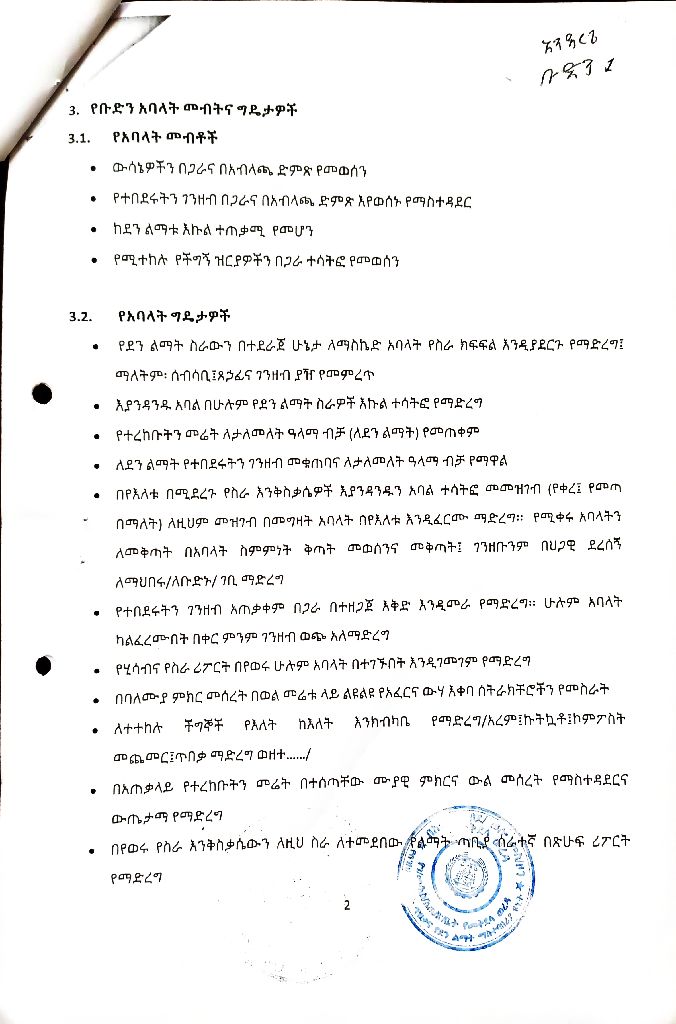 እንዳረጌ
ቡድን 1
3. የቡድን አባላት መብትና ግዴታዎች
3.1. የአባላት መብቶች
• ውሳኔዎችን በጋራና በአብላጫ ድምጽ የመወሰን
• የተበደሩትን ገንዘብ በጋራና በአብላጫ ድምጽ እየወሰኑ የማስተዳደር
• ከደን ልማቱ እኩል ተጠቃሚ የመሆን
• የሚተከሉ የችግኝ ዝርያዎችን በጋራ ተሳትፎ የመወሰን
3.2. የአባላት ግዴታዎች
• የደን ልማት ስራውን በተደራጀ ሁኔታ ለማስኬድ አባላት የስራ ክፍፍል እንዲያደርጉ የማድረግ፤
ማለትም፡ ሰብሳቢ፤ጸኃፊና ገንዘብ ያዥ የመምረጥ
• እያንዳንዱ አባል በሁሉም የደን ልማት ስራዎች እኩል ተሳትፎ የማድረግ
• የተረከቡትን መሬት ለታለመለት ዓላማ ብቻ (ለደን ልማት) የመጠቀም
• ለደን ልማት የተበደሩትን ገንዘብ መቁጠባና ለታለመለት ዓላማ ብቻ የማዋል
• በየእለቱ በሚደረጉ የስራ እንቅስቃሴዎች እያንዳንዱን አባል ተሳትፎ መመዝገብ (የቀረ፤ የመጣ
በማለት) ለዚህም መዝገብ በመግዛት አባላት በየእለቱ እንዲፈርሙ ማድረግ፡፡ የሚቀሩ አባላትን
ለመቅጣት በአባላት ስምምነት ቅጣት መወሰንና መቅጣት፤ ገንዘቡንም በህጋዊ ደረሰኝ
ለማህበሩ/ለቡድኑ/ ገቢ ማድረግ
• የተበደሩትን ገንዘብ አጠቃቀም በጋራ በተዘጋጀ እቅድ እንዲመራ የማድረግ፡፡ ሁሉም አባላት
ካልፈረሙበት በቀር ምንም ገንዘብ ወጭ አለማድረግ
• የሂሳብና የስራ ሪፖርት በየወሩ ሁሉም አባላት በተገኙበት እንዲገመገም የማድረግ
• በባለሙያ ምክር መሰረት በወል መሬቱ ላይ ልዩልዩ የአፈርና ውሃ እቀባ ስትራክቸሮችን የመስራት
• ለተተከሉ ችግኞች የእለት ከእለት እንክብካቤ የማድረግ/አረም፤ኩትኳቶ፤ኮምፖስት
መጨመር፤ጥበቃ ማድረግ ወዘተ....../
• በአጠቃላይ የተረከቡትን መሬት በተሰጣቸው ሙያዊ ምክርና ውል መሰረት የማስተዳደርና
ውጤታማ የማድረግ
• በየወሩ የስራ እንቅስቃሴውን ለዚህ ስራ ለተመደበው የልማት ጣቢያ ሰራተኛ በጽሁፍ ሪፖርት
የማድረግ
2